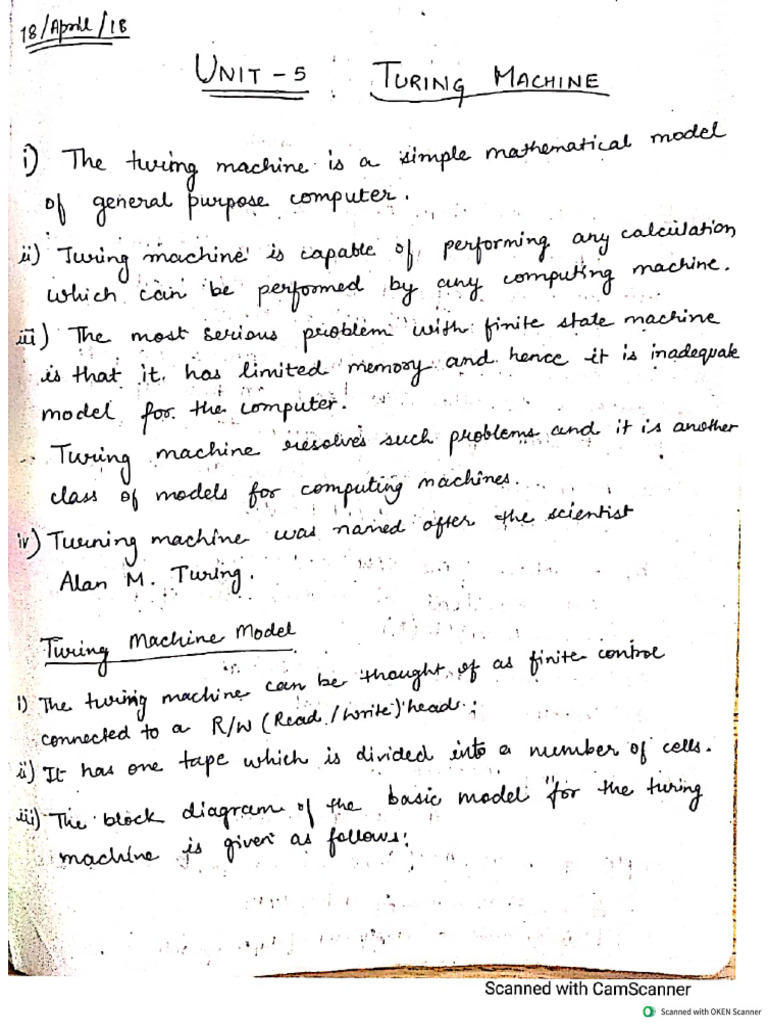 18/April/18
UNIT - 5 : TURING MACHINE
i) The turing machine is a simple mathematical model
of general purpose computer.
ii) Turing machine is capable of performing any calculation
which can be performed by any computing machine.
iii) The most serious problem with finite state machine
is that it has limited memory and hence it is inadequate
model for the computer.
Turing machine resolves such problems and it is another
class of models for computing machines.
iv) Turning machine was named after the scientist
Alan M. Turing.
Turing Machine Model
i) The turing machine can be thought of as finite control
connected to a R/W (Read/Write) head.
ii) It has one tape which is divided into a number of cells.
iii) The block diagram of the basic model for the turing
machine is given as follows:
Scanned with CamScanner
Scanned with OKEN Scanner